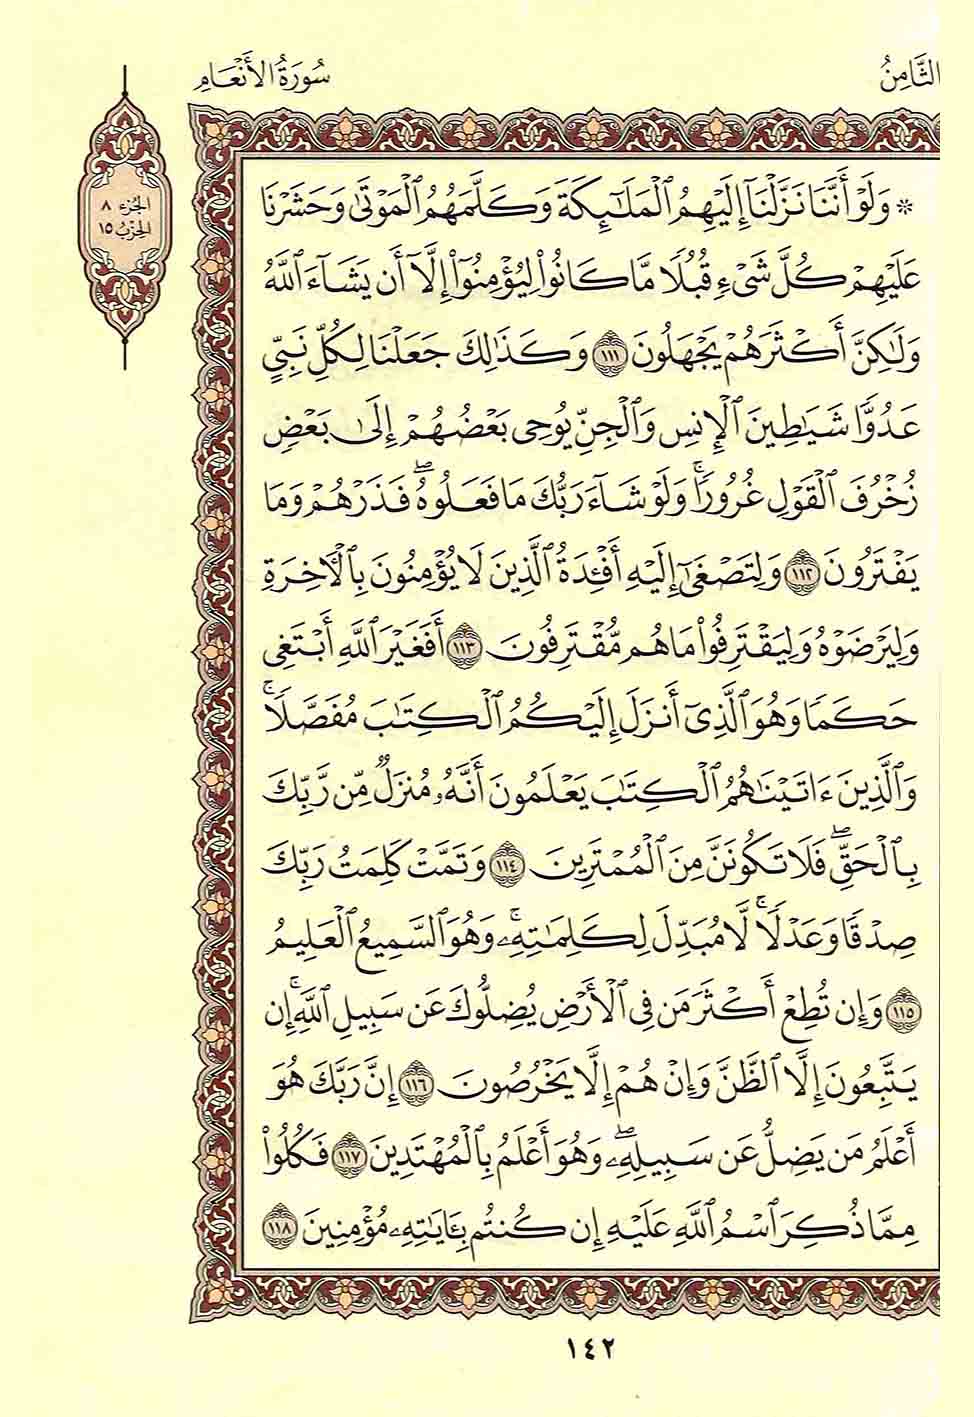 الثَّامِنُ
سُورَةُ الأَنْعَامِ
الجُزْء ٨
الحِزْبُ ١٥
* وَلَوْ أَنَّنَا نَزَّلْنَآ إِلَيْهِمُ ٱلْمَلَـٰٓئِكَةَ وَكَلَّمَهُمُ ٱلْمَوْتَىٰ وَحَشَرْنَا
عَلَيْهِمْ كُلَّ شَىْءٍ قُبُلًا مَّا كَانُوا۟ لِيُؤْمِنُوٓا۟ إِلَّآ أَن يَشَآءَ ٱللَّهُ
وَلَـٰكِنَّ أَكْثَرَهُمْ يَجْهَلُونَ ١١١ وَكَذَٰلِكَ جَعَلْنَا لِكُلِّ نَبِىٍّ
عَدُوًّا شَيَـٰطِينَ ٱلْإِنسِ وَٱلْجِنِّ يُوحِى بَعْضُهُمْ إِلَىٰ بَعْضٍ
زُخْرُفَ ٱلْقَوْلِ غُرُورًا ۚ وَلَوْ شَآءَ رَبُّكَ مَا فَعَلُوهُ ۖ فَذَرْهُمْ وَمَا
يَفْتَرُونَ ١١٢ وَلِتَصْغَىٰٓ إِلَيْهِ أَفْـِٔدَةُ ٱلَّذِينَ لَا يُؤْمِنُونَ بِٱلْـَٔاخِرَةِ
وَلِيَرْضَوْهُ وَلِيَقْتَرِفُوا۟ مَا هُم مُّقْتَرِفُونَ ١١٣ أَفَغَيْرَ ٱللَّهِ أَبْتَغِى
حَكَمًا وَهُوَ ٱلَّذِىٓ أَنزَلَ إِلَيْكُمُ ٱلْكِتَـٰبَ مُفَصَّلًا ۚ
وَٱلَّذِينَ ءَاتَيْنَـٰهُمُ ٱلْكِتَـٰبَ يَعْلَمُونَ أَنَّهُۥ مُنَزَّلٌ مِّن رَّبِّكَ
بِٱلْحَقِّ ۖ فَلَا تَكُونَنَّ مِنَ ٱلْمُمْتَرِينَ ١١٤ وَتَمَّتْ كَلِمَتُ رَبِّكَ
صِدْقًا وَعَدْلًا ۚ لَّا مُبَدِّلَ لِكَلِمَـٰتِهِۦ ۚ وَهُوَ ٱلسَّمِيعُ ٱلْعَلِيمُ
١١٥ وَإِن تُطِعْ أَكْثَرَ مَن فِى ٱلْأَرْضِ يُضِلُّوكَ عَن سَبِيلِ ٱللَّهِ ۚ إِن
يَتَّبِعُونَ إِلَّا ٱلظَّنَّ وَإِنْ هُمْ إِلَّا يَخْرُصُونَ ١١٦ إِنَّ رَبَّكَ هُوَ
أَعْلَمُ مَن يَضِلُّ عَن سَبِيلِهِۦ ۖ وَهُوَ أَعْلَمُ بِٱلْمُهْتَدِينَ ١١٧ فَكُلُوا۟
مِمَّا ذُكِرَ ٱسْمُ ٱللَّهِ عَلَيْهِ إِن كُنتُم بِـَٔايَـٰتِهِۦ مُؤْمِنِينَ ١١٨
١٤٢